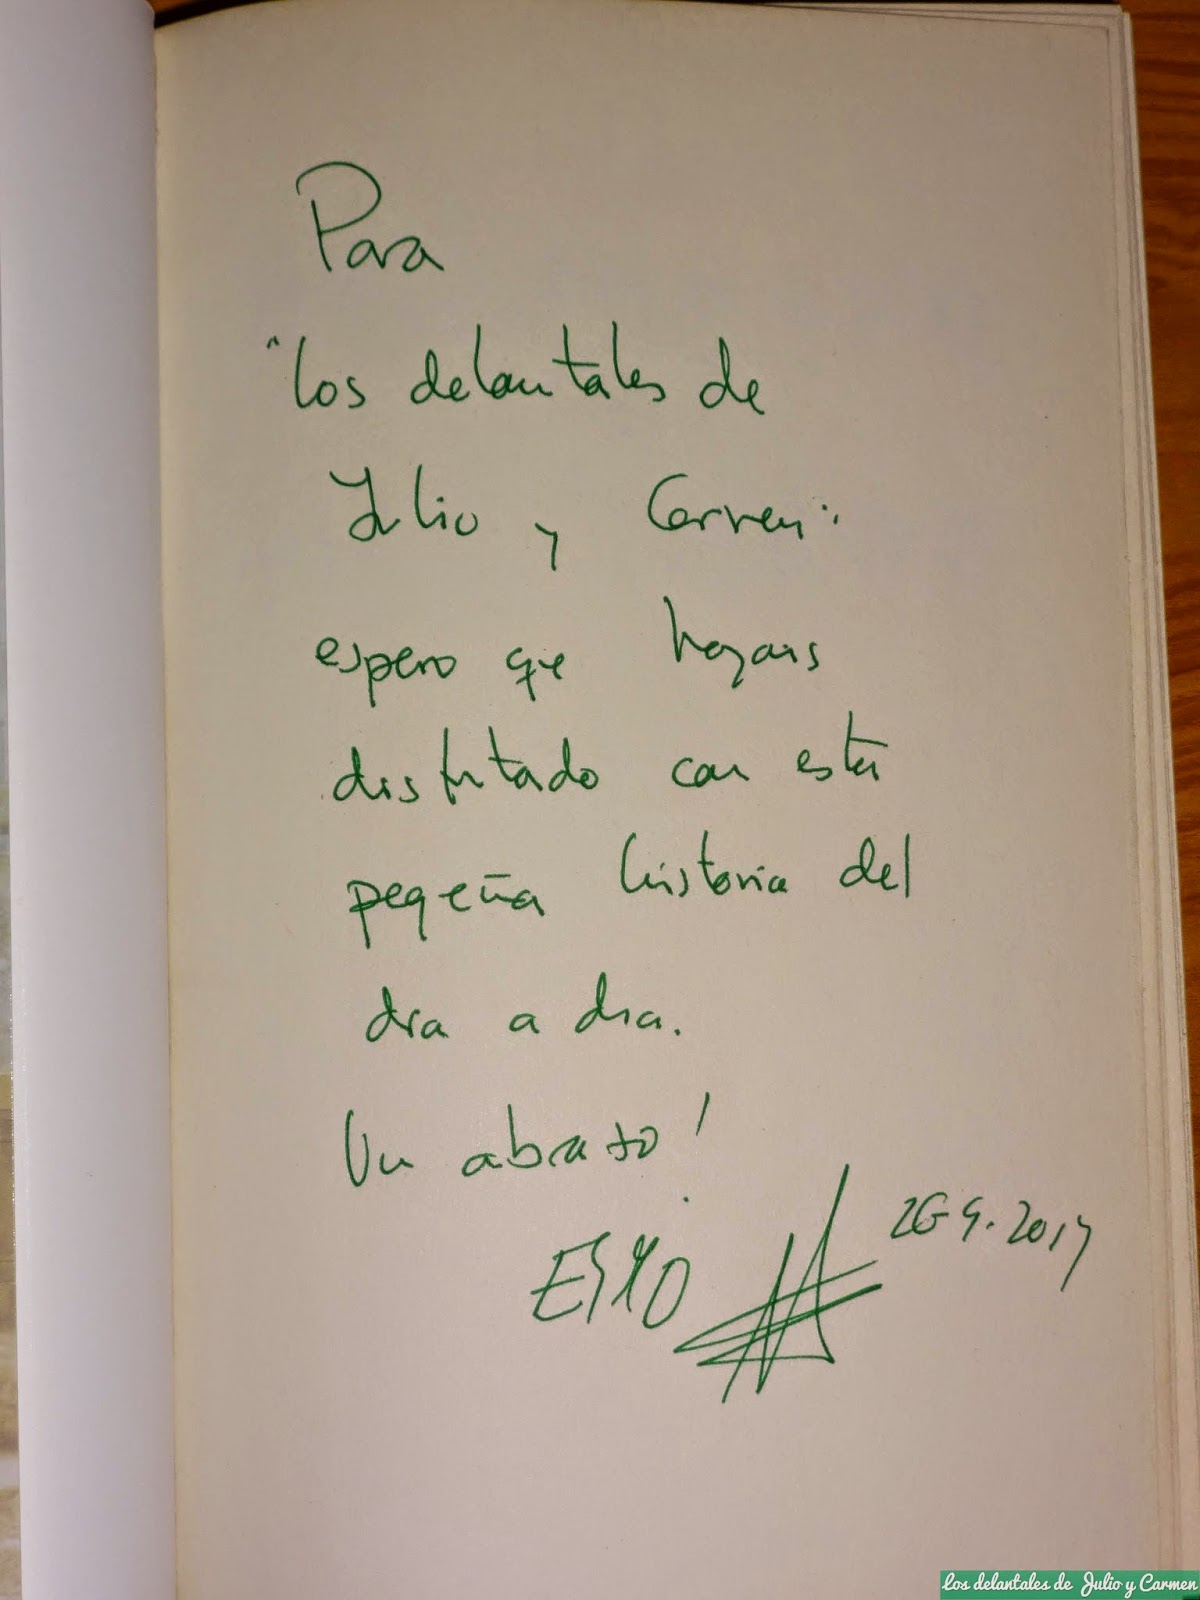 Para
"Los delantales de
Julio y Carmen":
espero que hayais
disfrutado con esta
pequeña historia del
dia a dia.
Un abrazo!
26 9. 2014
Los delantales de Julio y Carmen